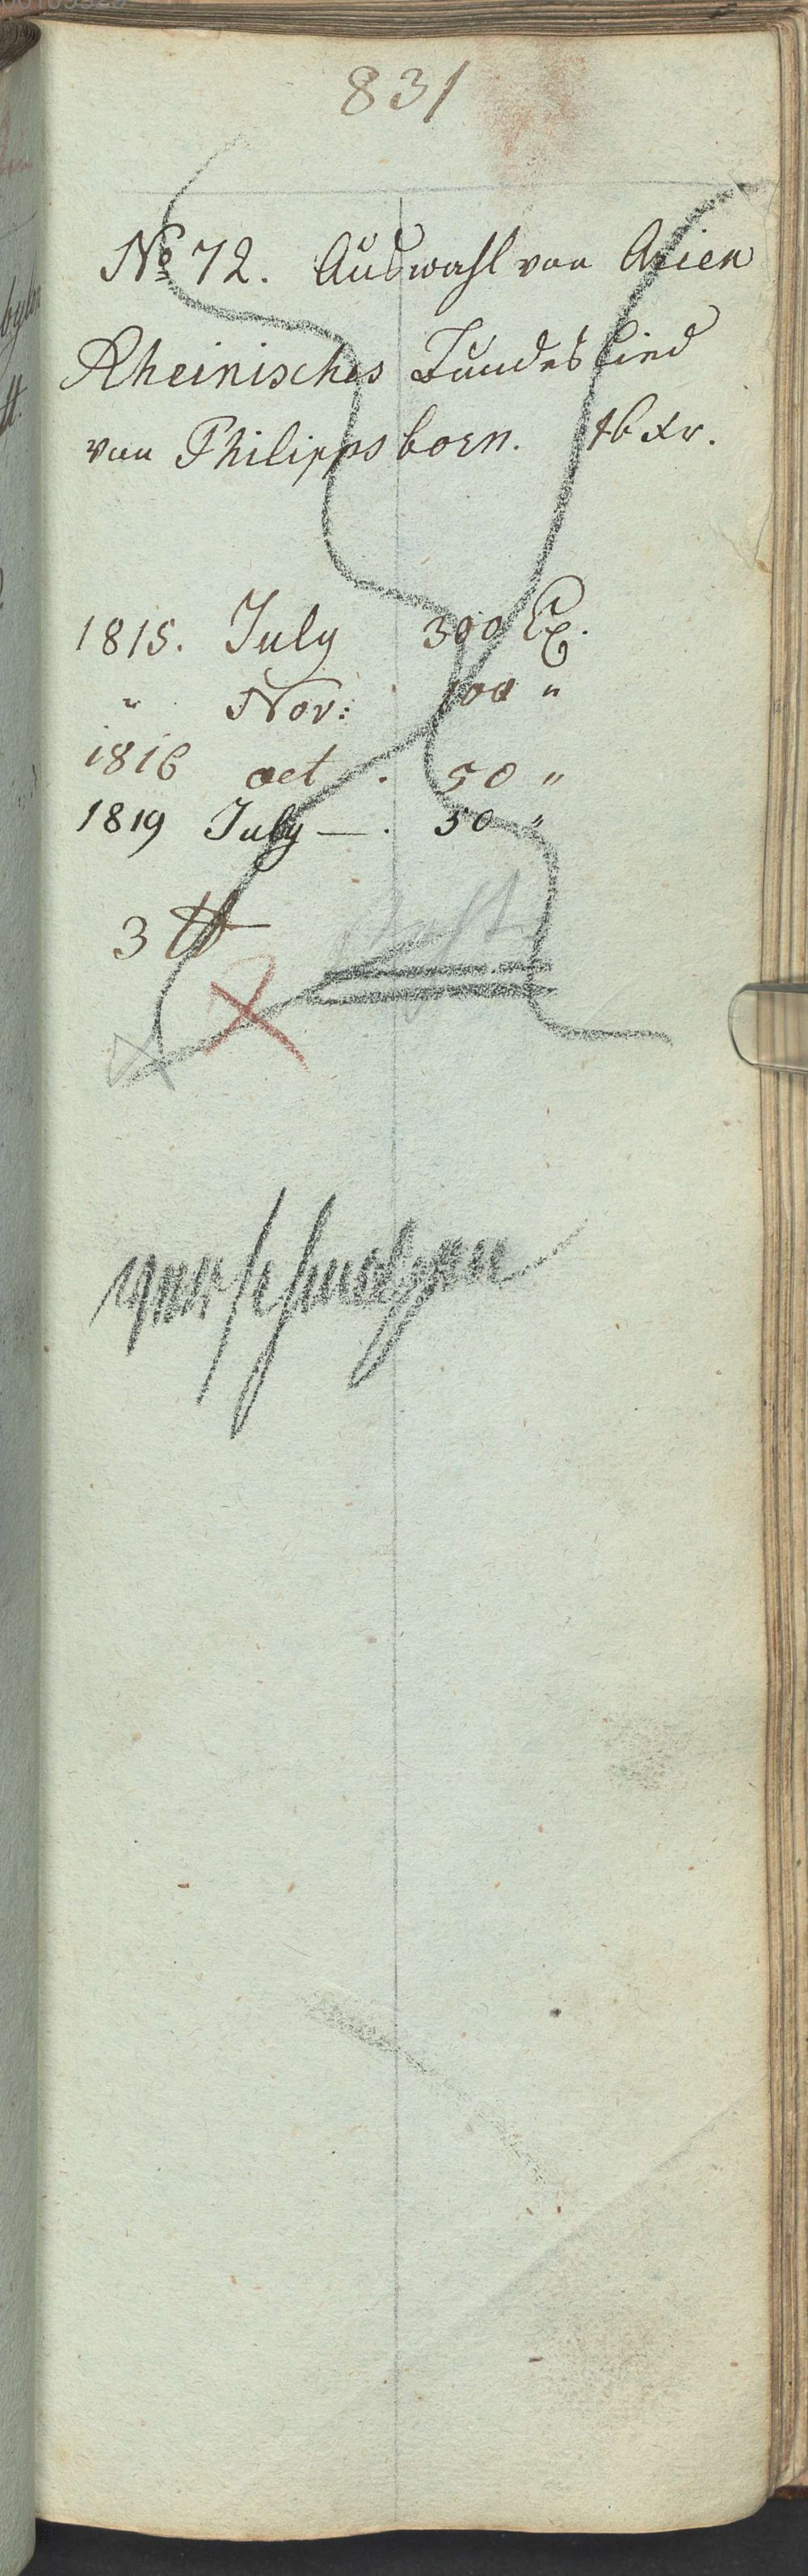 831
No 72. Auswahl von Arien
Rheinisches Bundeslied
von Philippsborn. 16 Xr.
1815. July 300 Ex.
" Nov: 100 "
1816 oct . 50 "
1819 July — . 50 "
3 tt
verschmolzen